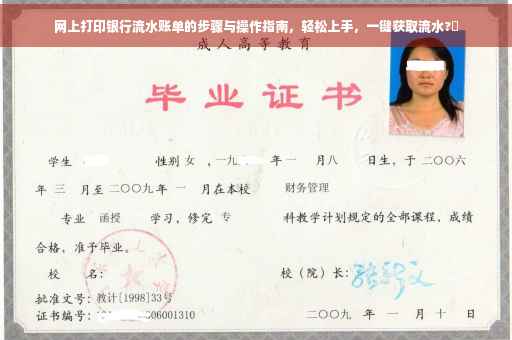 网上打印银行流水账单的步骤与操作指南，轻松上手，一键获取流水?
成人高等教育
毕业证书
学生 性别 女 ，一九 年 一 月 八 日生，于 二〇〇六
年 三 月至 二〇〇九 年 一 月在本校 财务管理
专业 函授 学习，修完 专 科教学计划规定的全部课程，成绩
合格，准予毕业。
校 名： 校（院）长：
批准文号：教计[1998]33号
证书编号： 06001310 二〇〇九 年 一 月 十 日